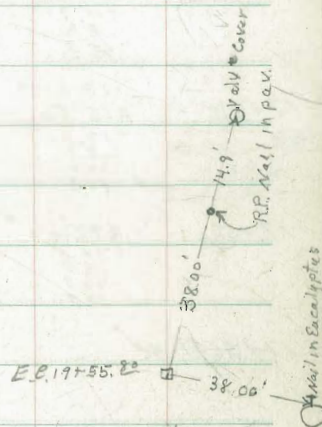 Valve Cover
14.9'
R.P. Nail in pav.
38.00'
E.C. 19+55.80
38.00'
Nail in Eucalyptus